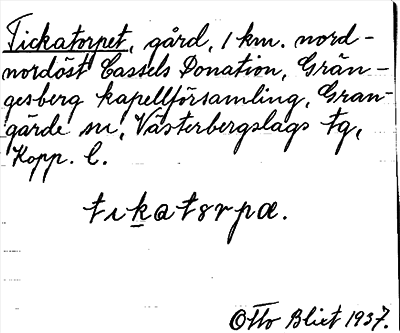 Tickatorpet, gård, 1 km. nord-
nordöst Cassels Donation, Grän-
gesberg kapellförsamling, Gran-
gärde sn, Västerbergslags tg,
Kopp. l.
tɩkatɵrpæ.
Otto Blixt 1937.